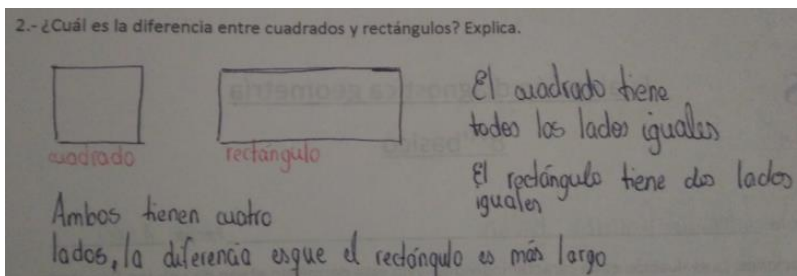 2.- ¿Cuál es la diferencia entre cuadrados y rectángulos? Explica.
cuadrado
rectángulo
El cuadrado tiene
todos los lados iguales
El rectángulo tiene dos lados
iguales
Ambos tienen cuatro
lados, la diferencia esque el rectángulo es más largo